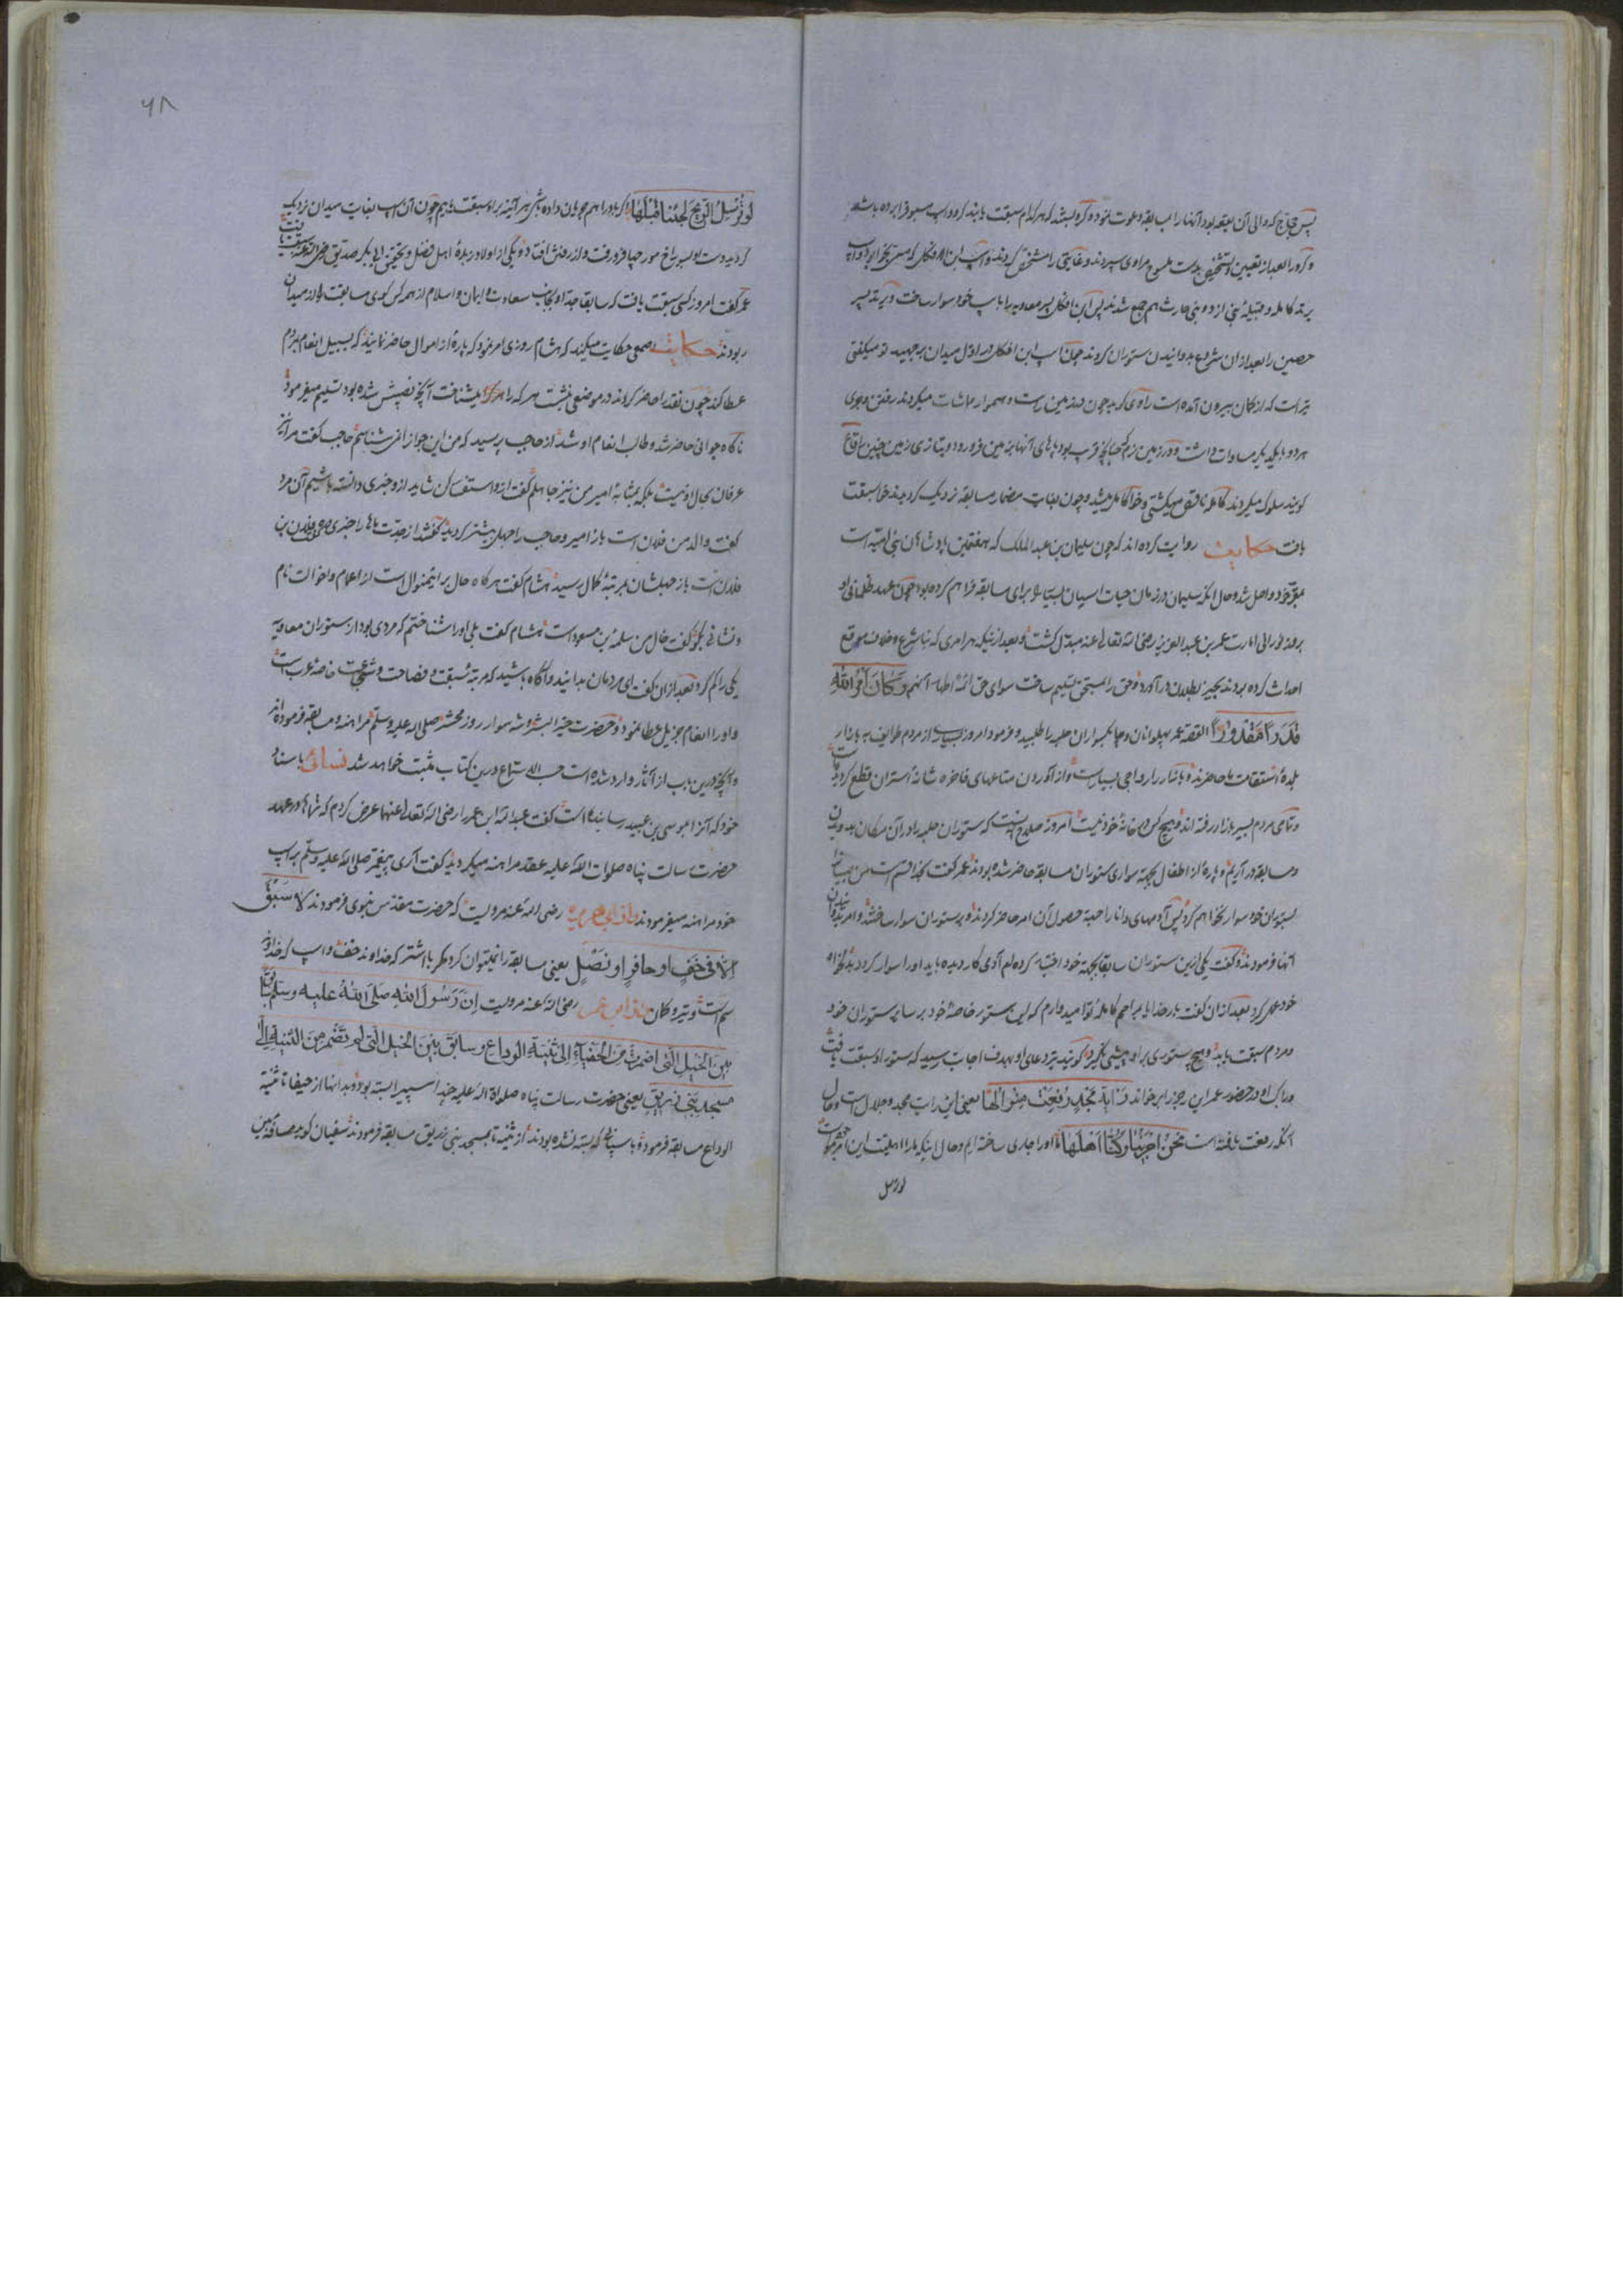 پس حجاج که والی آن بقعه بود آنها را بمسابقه دعوت نمود و گرو بستند که هر کدام سبقت یابند گرو و اسپ مسبوق را برده باشد
و گرو را بعد از تعیین و تشخیص بدست
بر تد کامله و قبیلهٔ بنی از دو بنی حارث هم جمع شدند پس ابن افکل پسر معاویه را باسپ خود سوار ساخت و یزید پسر
حصین را بعد از ان شروع بدوانیدن ستوران کردند چون اسپ ابن افکل در اول میدان برجهید تو میگفتی
تیر است که از کمان بیرون آمده است راوی گوید چون در زمین راست و هموار مماشات میکردند در رفتن و پوی
هر دو با یکدیگر مساوات داشت و در زمین نرم که پاهای آنها بزمین فرو رود و بتازی زمین چنین را قاع
گویند سلوک میکردند کامله ناقص میگشتی و چون بغایت مضمار مسابقه نزدیک گردیدند سبقت
یافت حکایت روایت کرده اند که چون سلیمان بن عبد الملک که هفتمین پادشاهان بنی امیه است
بمقر خود واصل شد و حال آنکه سلیمان در زمان حیات اسپان بسیار برای مسابقه فراهم کرده بود چون عهد ظلمانی او
بروز نورانی امارت عمر بن عبد العزیز رضی الله تعالی عنه مبدل گشت و بعد از نیکه هر امری که نباشرع و خلاف موقع
احداث کرده بودند بحیز بطلان در آورد و حق را بمستحق تسلیم ساخت سوای حق ائمهٔ اطهار آنهم وَكَانَ أَمْرُ اللَّهِ
قَدَرًا مَقْدُورًا القصه عمر پهلوانان و چابکسواران حلبه را طلبید و فرمود امروز بسیاری از مردم طوایف به بازار
بلدهٔ
و تمامی مردم بسیر بازار رفته اند و هیچ کس در خانهٔ خود نیست امروز صلاح اینست که ستوران حلبه را در آن مکان بدویدن
و مسابقه در آریم و پارهٔ از اطفال بجهة سواری ستوران مسابقه حاضر شده بودند عمر گفت بخدا قسم است من
بستوران خود سوار نخواهم کرد پس آدمهای دانا را بجهة حصول آن امر حاضر کردند و بر ستوران سوار ساختند و امر
آنها فرمودند و گفت یکی ازین ستوران سابقه بجهة خود اختیار کرده ام آدمی کار دیده باید او را سوار کرد
خود عمل کرد بعد از ان گفت بار خدایا بمراحم کاملهٔ تو امیدوارم که این ستور خاصهٔ خود بر سایر ستوران خود
و مردم سبقت یابد و هیچ ستوری بر او پیشی نگیرد گویند تیر دعای او بهدف اجابت رسید که ستور او سبقت یافت
و راکب او در حضور عمر این رجز را بر خواند رَايَةُ مَجْدٍ رُفِعَتْ مِنْ الُهَا یعنی این رایت مجد و جلال است و حال
آنکه رفعت یافته است نحن اجرینا وکنا اهلها ما او را جاری ساخته ایم و حال اینکه ما را اهلیت این امر
لو ترسل
۶۸
لو تُرسل الریح لجئنا قبلها اگر باد را هم جولان داده باشی هر آئینه براو سبقت یابیم چون آن اسپ بغایت میدان نزدیک
گردید و از رفتن افتاد و یکی از اولاد زبدهٔ اهل فضل و تحقیق ابی بکر صدیق رضی الله عنه سبقت یافت
عمر گفت امروز کسی سبقت یافت که سابقا جد او بجانب سعادت و ایمان و اسلام از همه کس گوی مسابقت را از میدان
ربودند حکایت اصمعی حکایت میکند که هشام روزی امر نمود که پارهٔ از اموال حاضر نمایند که بسبیل انعام بمردم
عطا کند چون نقد را حاضر کردند در موضعی نشست هر که را میشناخت آنچه نصیبش شده بود تسلیم میفرمود
ناگاه جوانی حاضر شد و طالب انعام او شد از حاجب پرسید که من این جوانرا نمی شناسم حاجب گفت مرا نیز
عرفان بحال او نیست بلکه بمثابهٔ امیر من نیز جاهلم گفت از و استفسار کن شاید از و خبری دانسته باشیم آن مرد
گفت والد من فلان است باز امیر و حاجب را جهل بیشتر گردید گفتند از جدت ما را خبری ده گفت فلان بن
فلان است باز جهلشان بمرتبهٔ کمال رسید هشام گفت هر گاه حال بر اینمنوال است از اعمام و اخوالت نام
و نشانی بگو گفت خال من سلمة بن مسعود است هشام گفت بلی او را شناختم که مردی بود از ستوران معاویه
یکی را گم کرد بعد از ان گفت ای مردمان بدانید و آگاه باشید که مرتبهٔ سبقت و فصاحت و شجاعت خاصهٔ عرب است
و او را انعام جزیل عطا نمود و حضرت خیر البشر و شهسوار روز محشر صلی الله علیه وسلم مراهنه و مسابقه فرموده اند
و آنچه درین باب از آثار وارد شده است حسب الاستماع درین کتاب مثبت خواهد شد نسائی باسناد
خود که آنرا بموسی بن عبید رسانیده است گفت عبد الله ابن عمر را رضی الله تعالی عنهما عرض کردم که شما در عهد
حضرت رسالت پناه صلوات الله علیه عقد مراهنه میکردید گفت آری پیغمبر صلی الله علیه وسلم بر اسپ
خود مراهنه میفرمودند و از ابی هریره رضی الله عنه مرویست که حضرت مقدس نبوی فرمودند لا سَبَقَ
اِلّا فی خُفٍّ او حافرٍ او نَصْلٍ یعنی مسابقه را نمیتوان کرد مگر با اشتر که خداوند خف و اسپ که خداوند
سم است و تیر و کمان و از ابن عمر رضی الله عنه مرویست اِنَّ رَسُولَ اللهِ صَلَّی اللهُ علیه وسلم سابق
بین الخیل الّتی اضمرت من الحفیاء الی ثنیة الوداع و سابق بین الخیل الّتی لم تضمر من الثنیة الی
مسجد بنی زریق یعنی حضرت رسالت پناه صلواة الله علیه چند اسپ را بسته بود و بدانها از حیفا تا ثنیة
الوداع مسابقه فرمود و با اسپانی که بسته نشده بودند از ثنیة تا بمسجد بنی زریق مسابقه فرمودند سفیان گوید مسافة بین